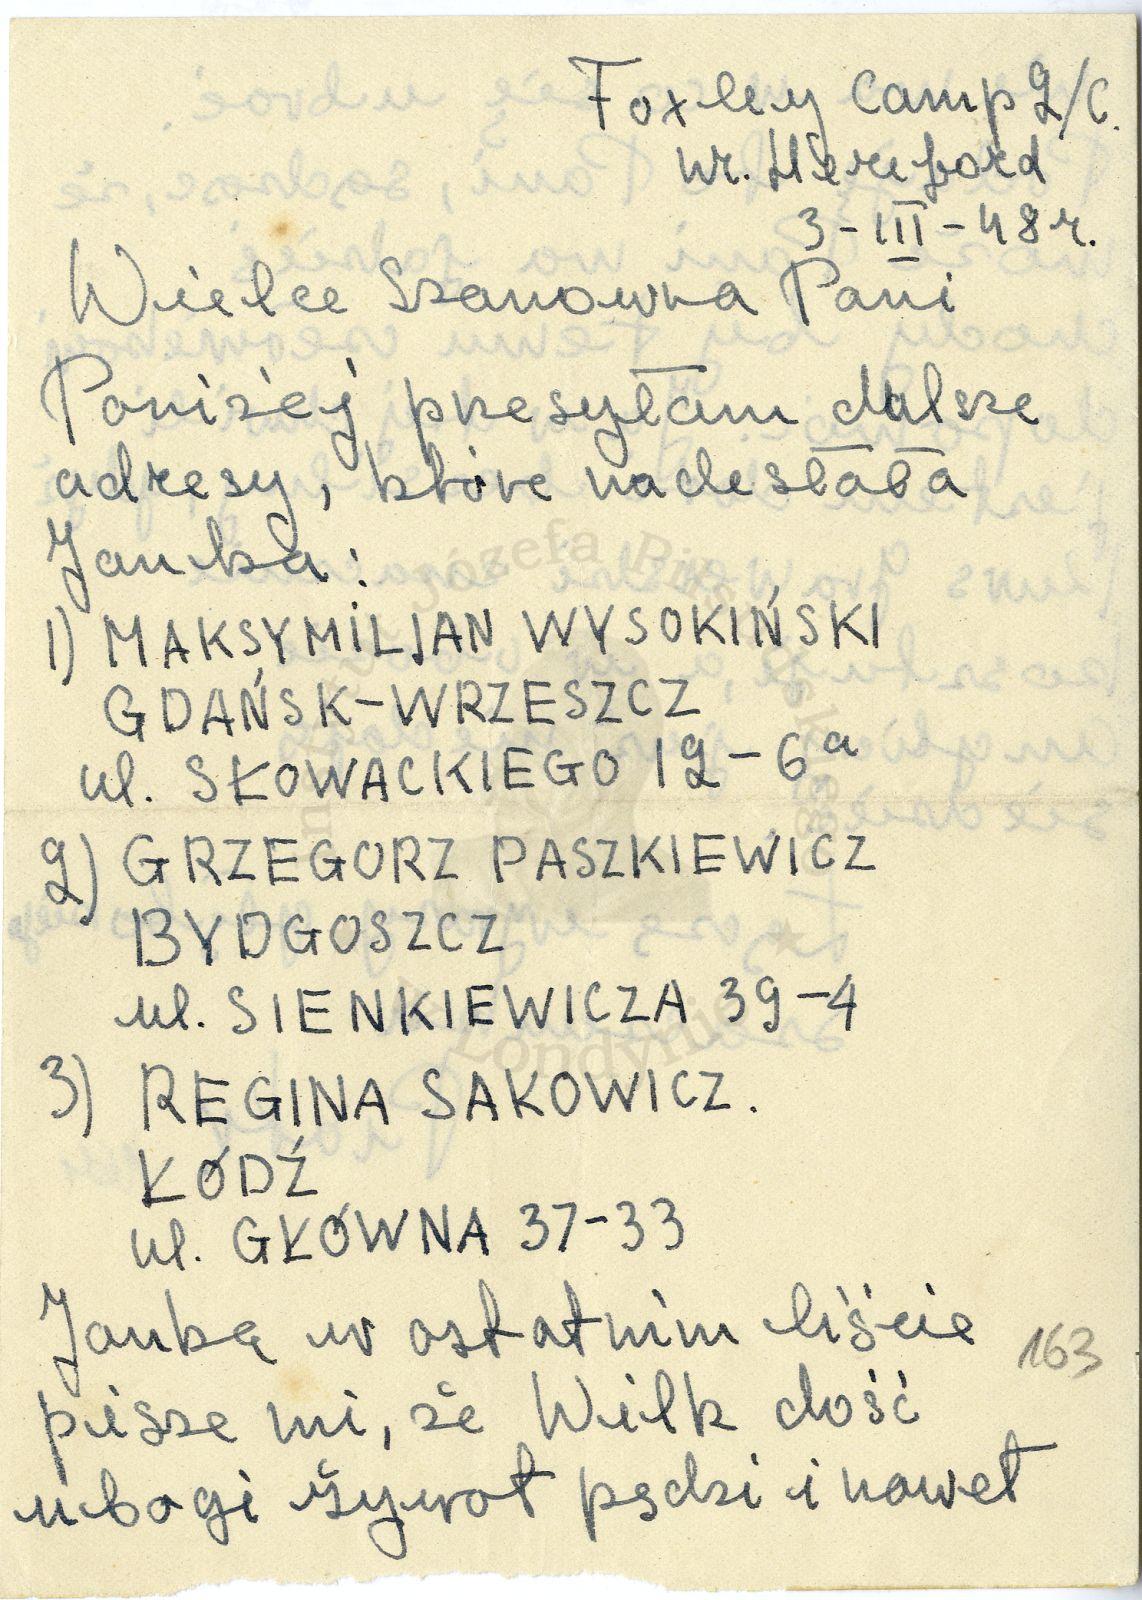 Foxley Camp 2/C.
nr. Hereford
3-III-48r.
Wielce Szanowna Pani
Poniżej przesyłam dalsze
adresy, które nadesłała
Janka:
1) MAKSYMILJAN WYSOKIŃSKI
GDAŃSK-WRZESZCZ
ul. SŁOWACKIEGO 12-6a
2) GRZEGORZ PASZKIEWICZ
BYDGOSZCZ
ul. SIENKIEWICZA 39-4
3) REGINA SAKOWICZ.
ŁÓDŹ
ul. GŁÓWNA 37-33
Janka w ostatnim liście
163
pisze mi, że Wilk dość
ubogi żywot pędzi i nawet